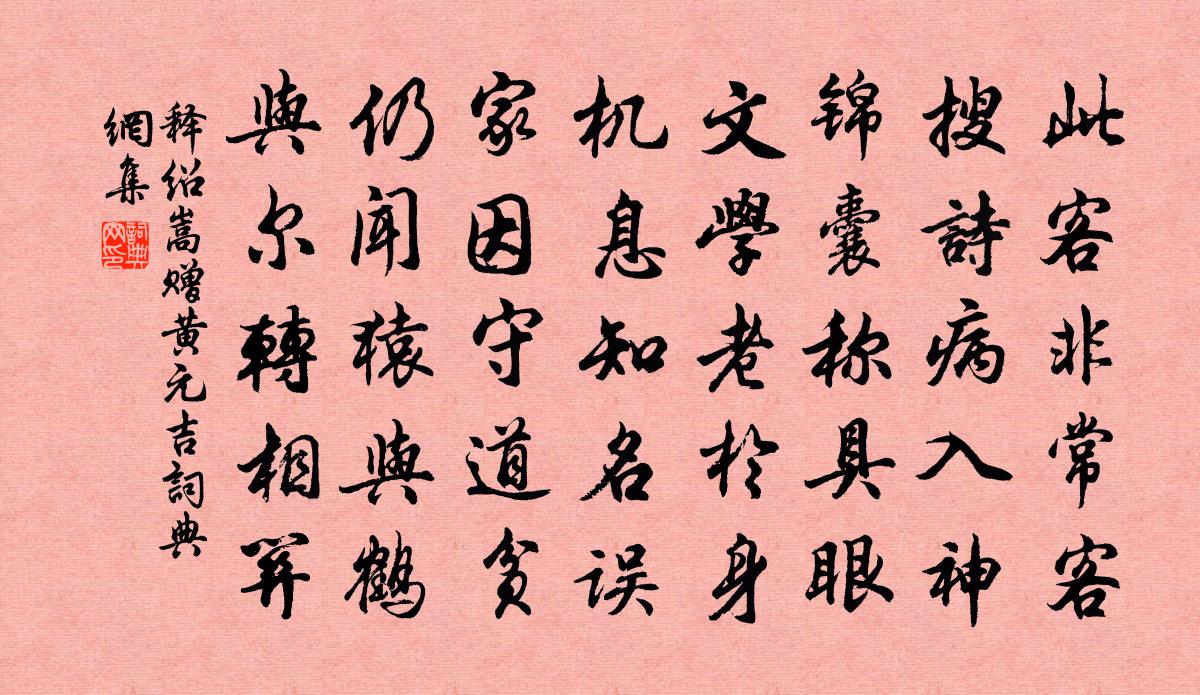 此客非常客
搜詩病入神
锦囊称具眼
文學老於身
机息知名误
家因守道贫
仍闻猿與鹤
與尔轉相𢌿
释绍嵩赠黄元吉詞典
網集
詞典
网印